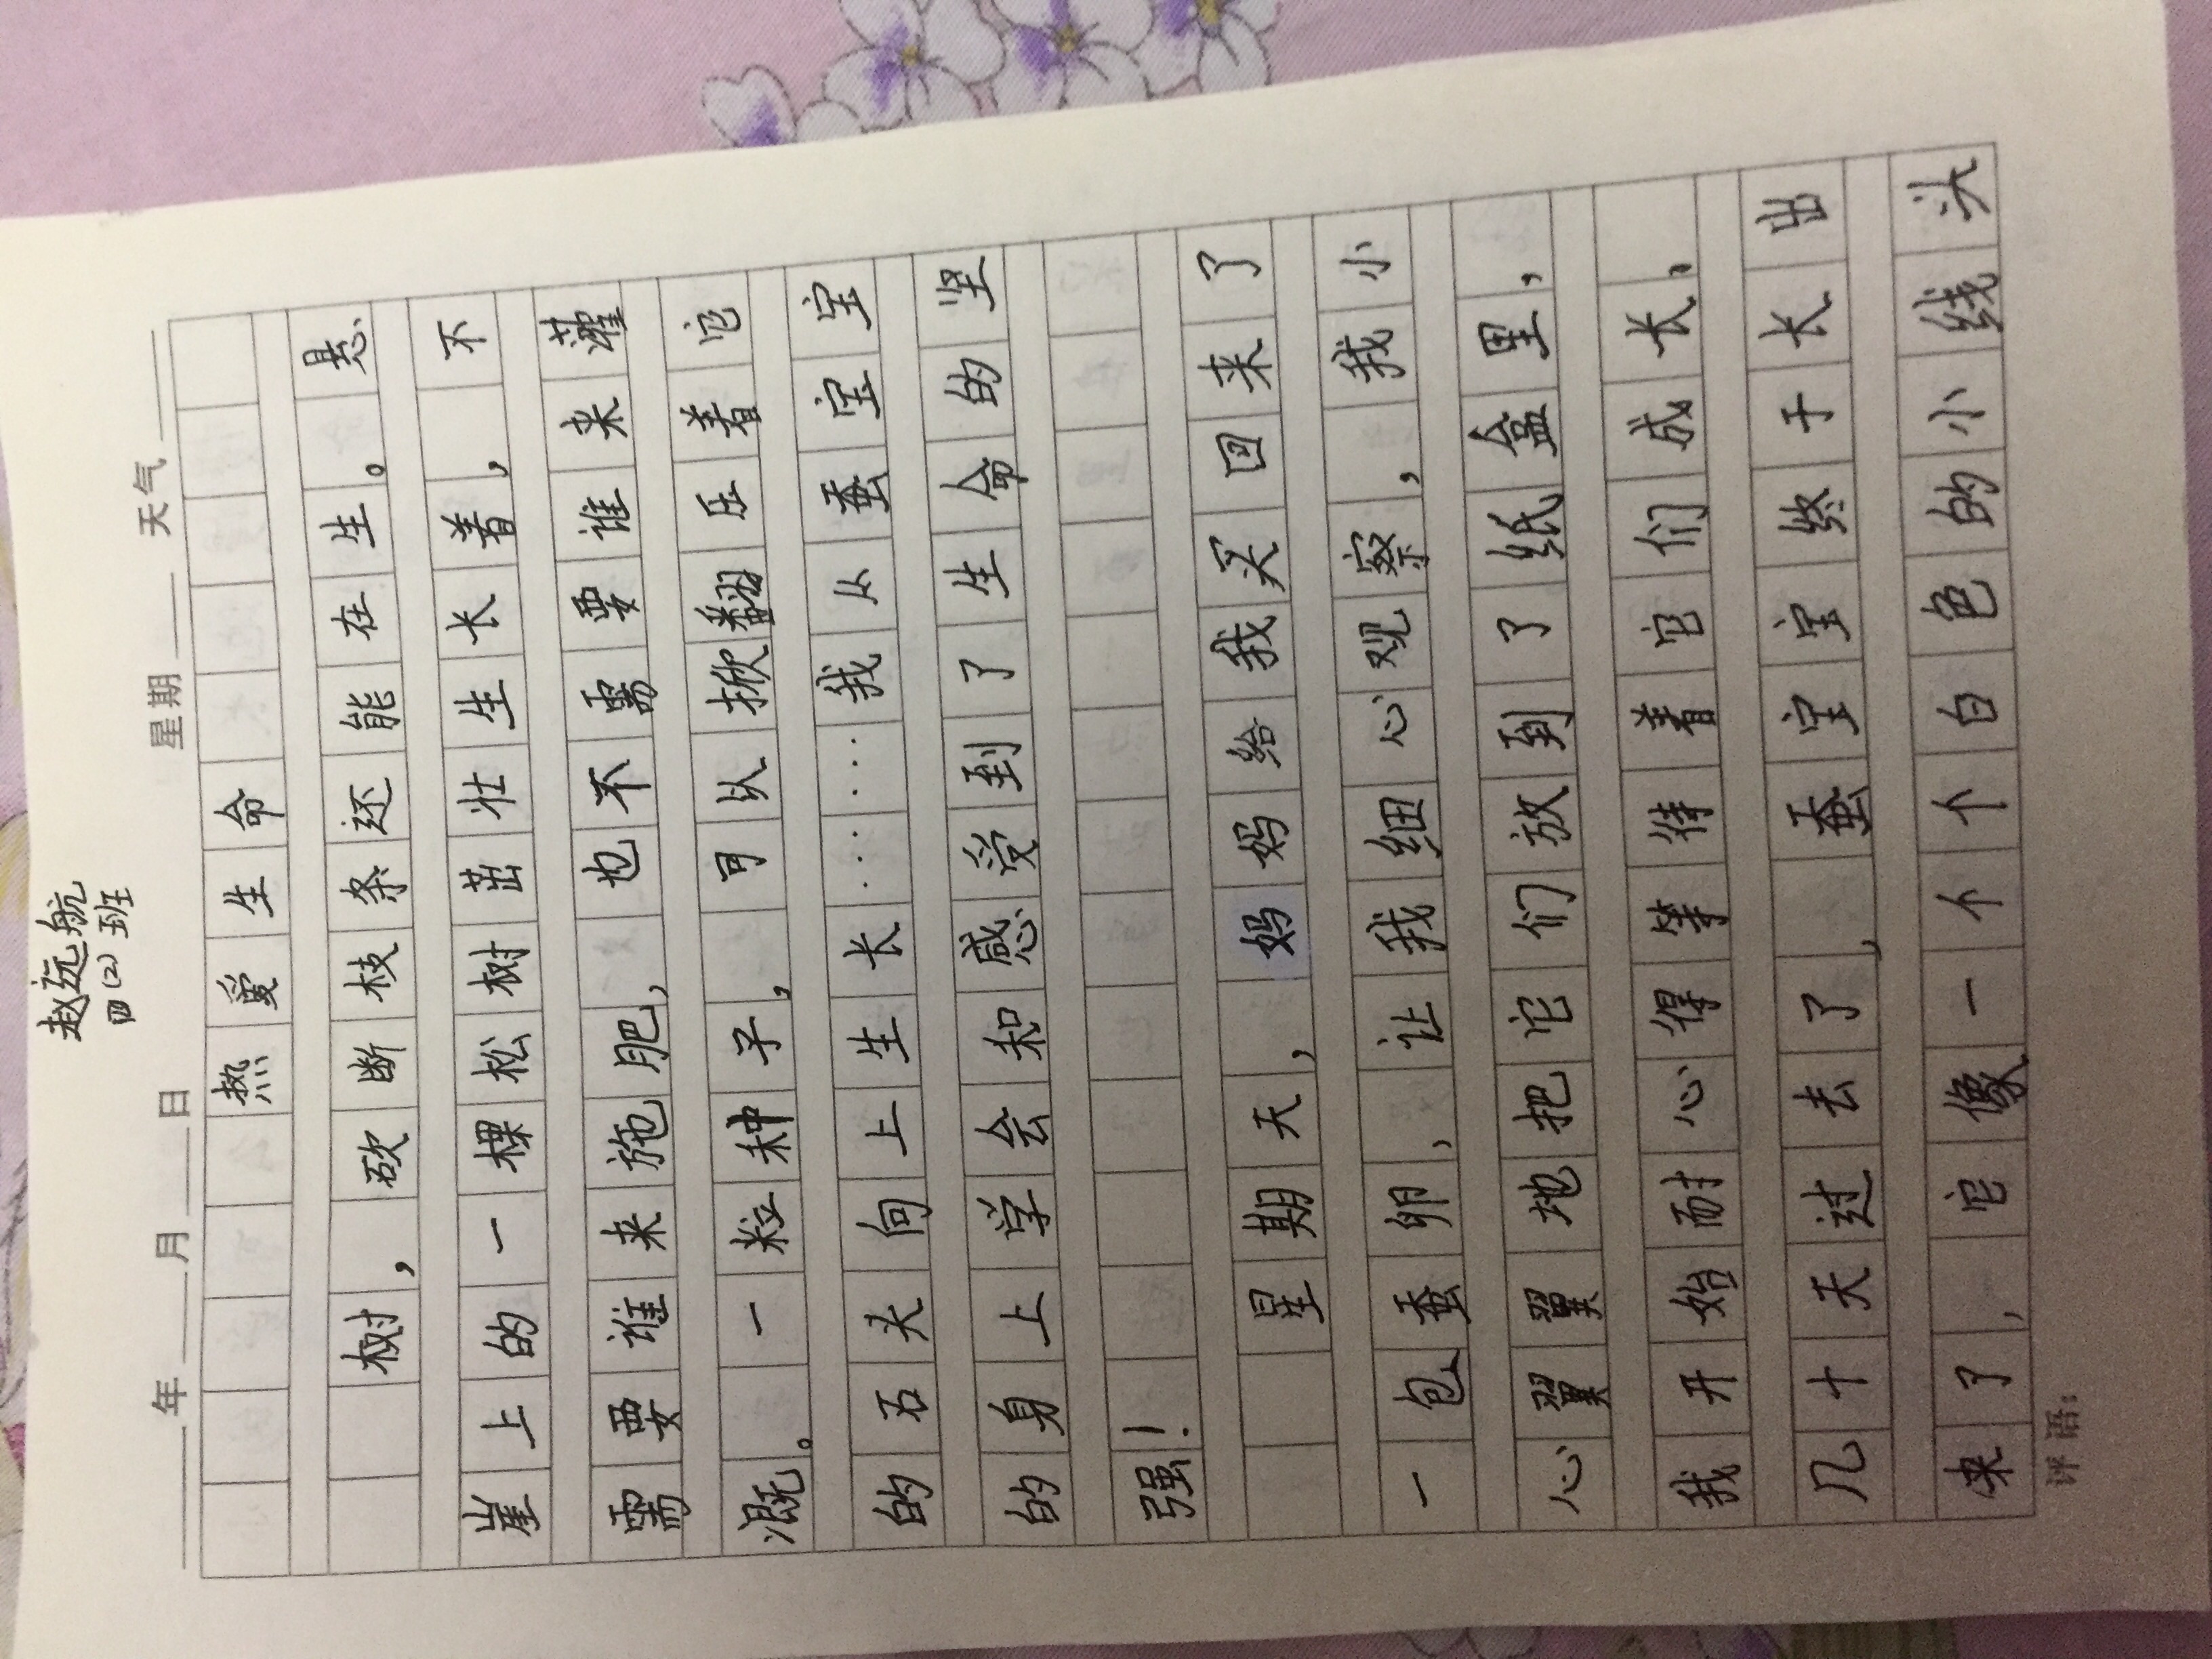 赵远航
四(2)班
年 月 日 星期 天气
热爱生命
树，砍断枝条还能在生。悬
崖上的一棵松树茁壮生长着，不
需要谁来施肥，也不需要谁来灌
溉。一粒种子，可以掀翻压着它
的石头向上生长……我从蚕宝宝
的身上学会和感受到了生命的坚
强！
星期天，妈妈给我买回来了
一包蚕卵，让我细心观察，我小
心翼翼地把它们放到了纸盒里，
我开始耐心得等待着它们成长，
几十天过去了，蚕宝宝终于长出
来了，它像一个个白色的小线头
评语：